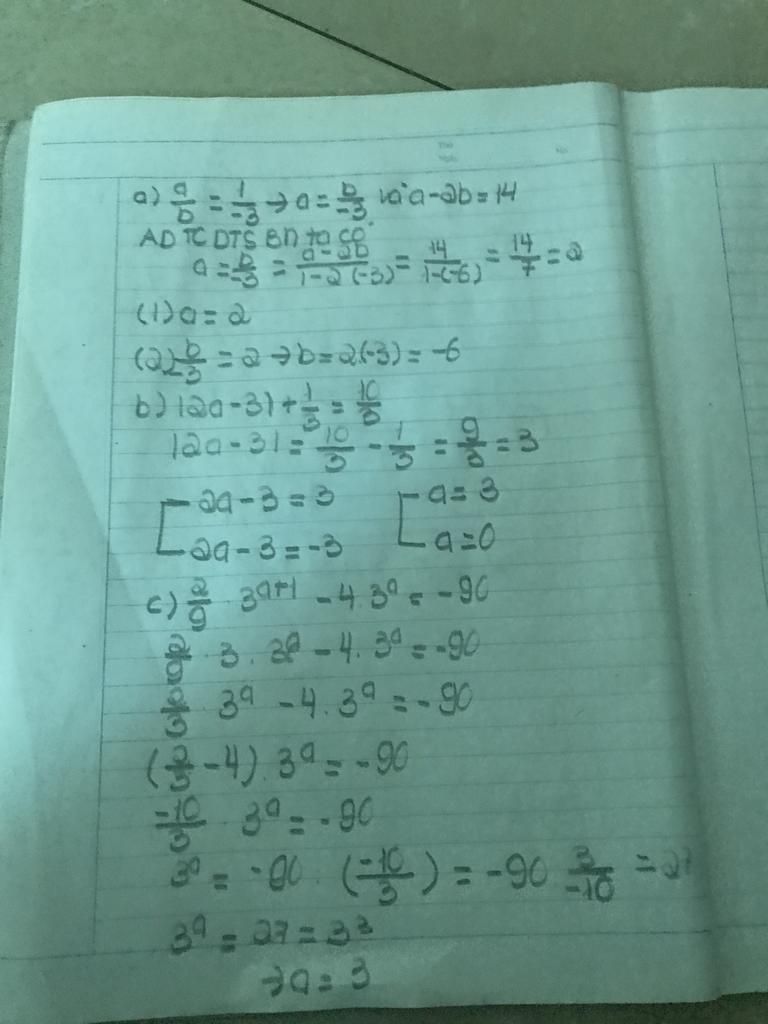 a) a/b = 1/-3 → a = b/-3 và a-2b = 14
ADTCDTSBN ta có
a = b/-3 = a-2b/1-2(-3) = 14/1-(-6) = 14/7 = 2
(1) a = 2
(2) b/-3 = 2 → b = 2(-3) = -6
b) |2a-3| + 1/3 = 10/3
|2a-3| = 10/3 - 1/3 = 9/3 = 3
[ 2a-3 = 3 [ a = 3
2a-3 = -3 a = 0
c) 2/9 3^(a+1) - 4.3^a = -90
2/9 . 3 . 3^a - 4. 3^a = -90
2/3 3^a - 4. 3^a = -90
(2/3 - 4). 3^a = -90
-10/3 3^a = -90
3^a = -90 . (-10/3) = -90 3/-10 = 27
3^a = 27 = 3^3
→ a = 3